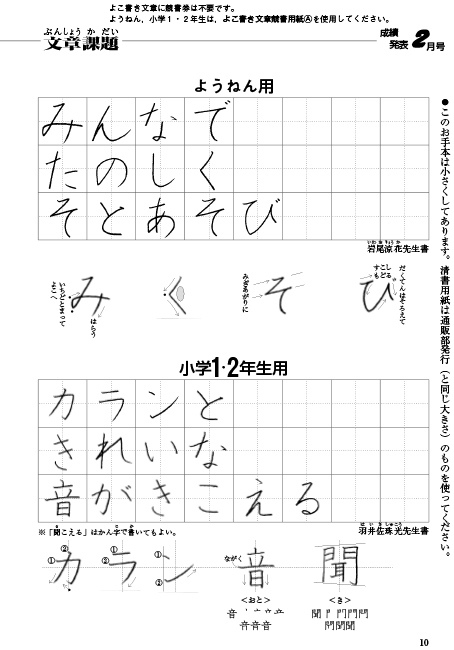 よこ書き文章に競書券は不要です。
ようねん，小学1・2年生は，よこ書き文章競書用紙Ⓐを使用してください。
ぶんしょう か だい
文章課題
成績
発表 2月号
ようねん用
みんなで
たのしく
そとあそび
岩尾涼花先生書
み
いちどとまって
よこへ
はらう
く
みぎあがりに
そ
すこし
もどる
び
だくてんはそろえて
●このお手本は小さくしてあります。清書用紙は通販部発行（と同じ大きさ）のものを使ってください。
小学1・2年生用
カランと
きれいな
音がきこえる
※「聞こえる」はかん字で書いてもよい。
羽井佐珠光先生書
① ② カ
① ② ラ
① ② ン
ながく
音
聞
<おと>
<き>
10